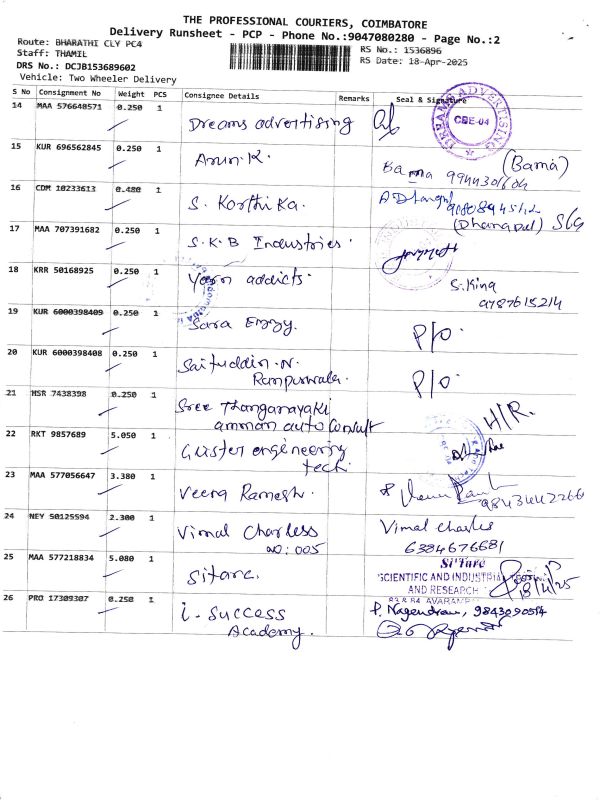 THE PROFESSIONAL COURIERS, COIMBATORE
Delivery Runsheet - PCP - Phone No.:9047080280 - Page No.:2
Route: BHARATHI CLY PC4
RS No.: 1536896
Staff: THAMIL
RS Date: 18-Apr-2025
DRS No.: DCJB153689602
Vehicle: Two Wheeler Delivery
S No Consignment No Weight PCS Consignee Details Remarks Seal & Signature
14 MAA 576648571 0.250 1 Dreams advertising
DREAMS ADVERTISING CBE-04
15 KUR 696562845 0.250 1 Arun.K.
Bama (Bama)
16 CDM 10233613 0.480 1 S. Korthika.
(Dhanapal)
17 MAA 707391682 0.250 1 S.K.B Industries.
18 KRR 50168925 0.250 1 Yarn addicts.
S.King
9787615214
19 KUR 6000398409 0.250 1 Sara Enggy. P/O.
20 KUR 6000398408 0.250 1 Saifuddin.N. P/O.
Rampurwala.
21 HSR 7438398 0.250 1 Sree Thanganayaki H/R.
amman auto consult
22 RKT 9857689 5.050 1 Guster engineering
tech.
23 MAA 577056647 3.380 1 Veera Ramesh.
9843442266
24 NEY 50125594 2.300 1 Vimal Charless Vimal Charles
NO: 005 6384676681
25 MAA 577218834 5.080 1 Sitarc.
Si'Tarc
SCIENTIFIC AND INDUSTRIAL TESTING
AND RESEARCH
18/4/25
26 PRO 17309307 0.250 1 i- Success P. Nagendran, 9843090514
Academy.